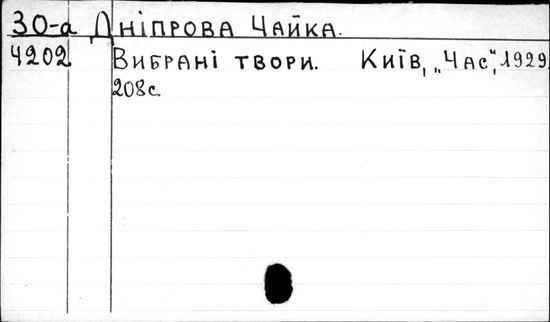 30-а Дніпрова Чайка.
4202 Вибрані твори. Київ, „Час", 1929.
208 с.